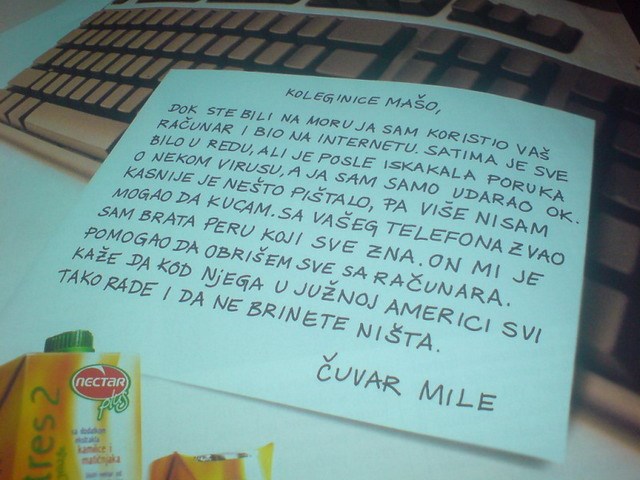 KOLEGINICE MAŠO,
DOK STE BILI NA MORU JA SAM KORISTIO VAŠ
RAČUNAR I BIO NA INTERNETU. SATIMA JE SVE
BILO U REDU, ALI JE POSLE ISKAKALA PORUKA
O NEKOM VIRUSU, A JA SAM SAMO UDARAO OK.
KASNIJE JE NEŠTO PIŠTALO, PA VIŠE NISAM
MOGAO DA KUCAM. SA VAŠEG TELEFONA ZVAO
SAM BRATA PERU KOJI SVE ZNA. ON MI JE
POMOGAO DA OBRIŠEM SVE SA RAČUNARA.
KAŽE DA KOD NJEGA U JUŽNOJ AMERICI SVI
TAKO RADE I DA NE BRINETE NIŠTA.
ČUVAR MILE
NECTAR
plus
kamilice i
matičnjaka